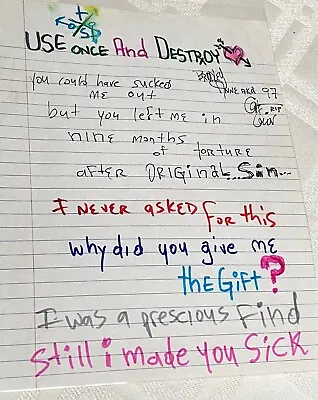 USE ONCE And DESTROY
you could have sucked
me out
but you left me in
nine months
of torture
after ORIGinal Sin...
I NEVER asked for this
why did you give me
the Gift?
I was a prescious Find
Still i made you SICK